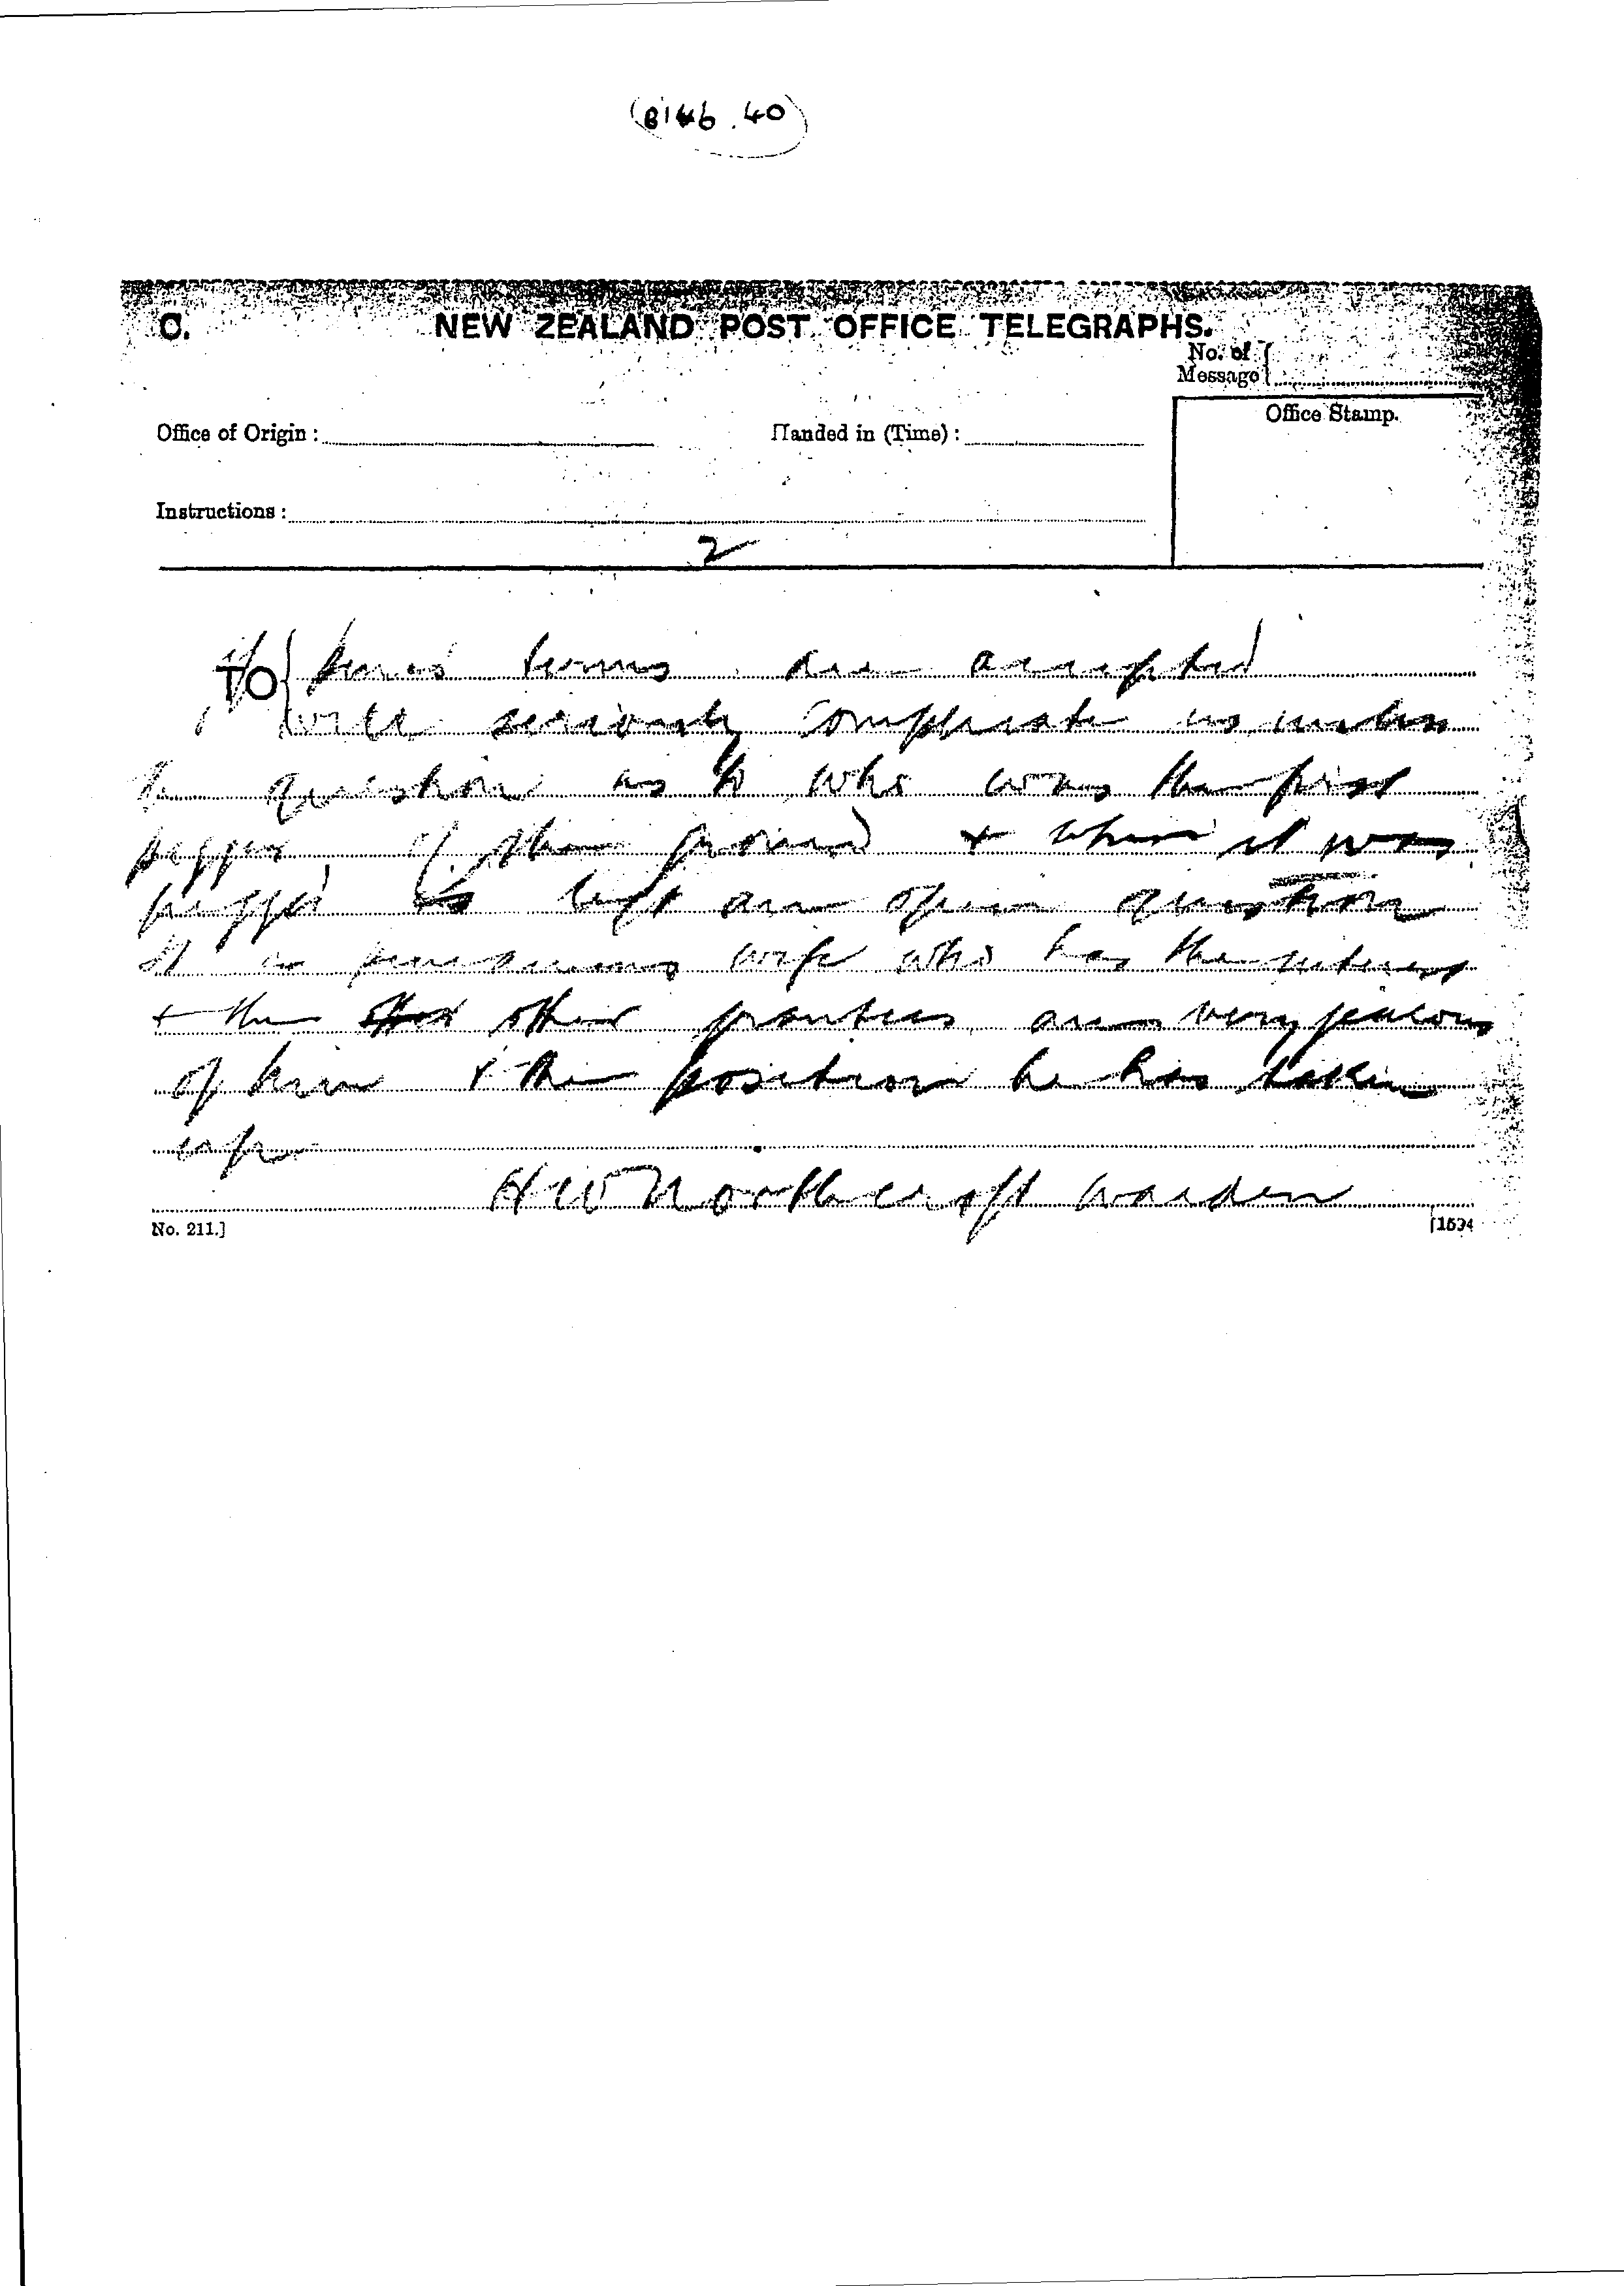 (B146.40)
C. NEW ZEALAND POST OFFICE TELEGRAPHS.
No. of Message
Office of Origin : Handed in (Time) : Office Stamp.
Instructions :
2
TO if terms are accepted
will seriously complicate us unless
the question as to who was the first
pegger of the ground & when it was
pegged is left an open question
It is wife who has the interest
& the other parties are very jealous
of him & the position he has taken
up
HW Northcroft Warden
No. 211.] [1594